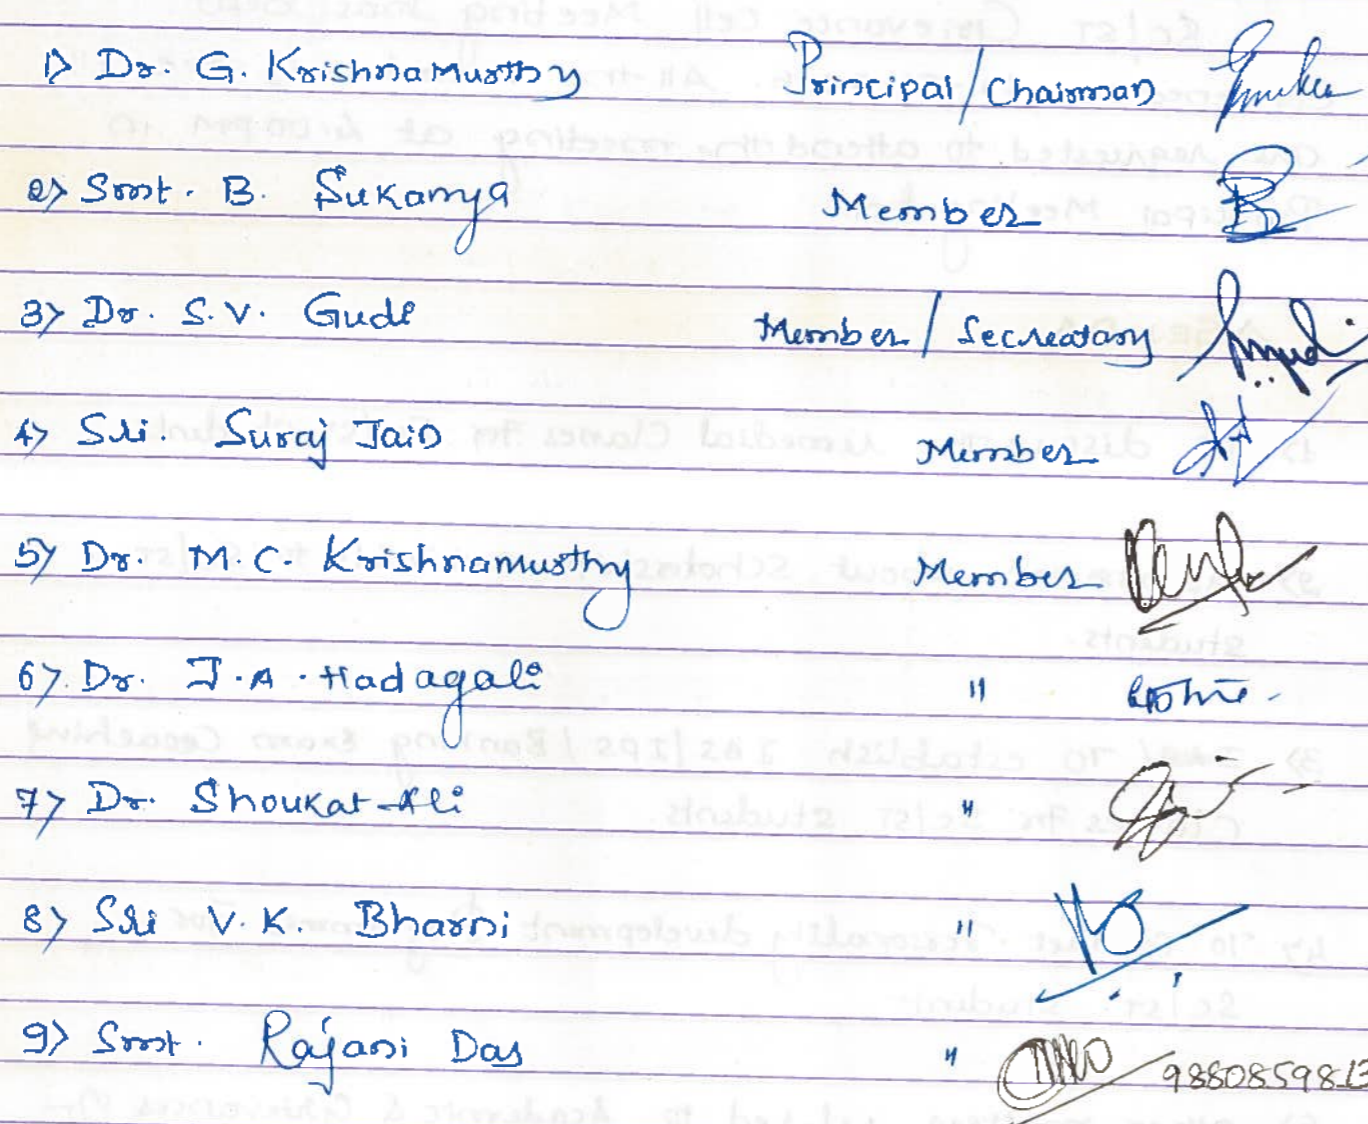 1> Dr. G. Krishnamurthy Principal / Chairman
2> Smt. B. Sukanya Member
3> Dr. S.V. Gudi Member / Secreatary
4> Sri. Suraj Jain Member
5> Dr. M.C. Krishnamurthy Member
6> Dr. J.A. Hadagali "
7> Dr. Shoukat Ali "
8> Sri V.K. Bharni "
9> Smt. Rajani Das "